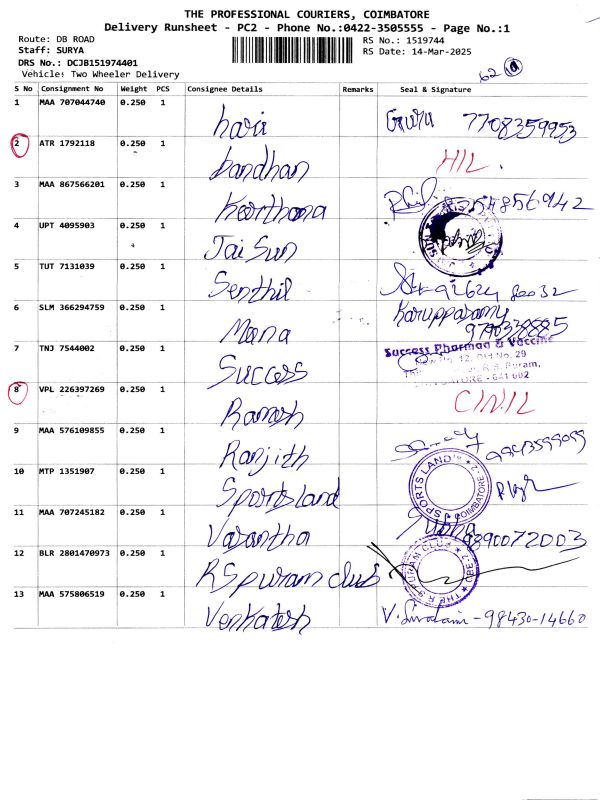 THE PROFESSIONAL COURIERS, COIMBATORE
Delivery Runsheet - PC2 - Phone No.:0422-3505555 - Page No.:1
Route: DB ROAD
RS No.: 1519744
Staff: SURYA
RS Date: 14-Mar-2025
DRS No.: DCJB151974401
Vehicle: Two Wheeler Delivery
62 10
S No Consignment No Weight PCS Consignee Details Remarks Seal & Signature
1 MAA 707044740 0.250 1 hari Guru 7708359953
2 ATR 1792118 0.250 1 bandhan H/L
3 MAA 867566201 0.250 1 Keerthana
4 UPT 4095903 0.250 1 Jai Sun
5 TUT 7131039 0.250 1 Senthil
6 SLM 366294759 0.250 1 Mana Karuppasamy
7 TNJ 7544002 0.250 1 Success Success Pharmaa & Vaccine
No. 12, Old No. 29
R.S. Puram,
COIMBATORE - 641 002
8 VPL 226397269 0.250 1 Ramesh
9 MAA 576109855 0.250 1 Ranjith
10 MTP 1351907 0.250 1 Sportsland SPORTS LAND COIMBATORE-2
11 MAA 707245182 0.250 1 Vasantha 9390072003
12 BLR 2801470973 0.250 1 RS puram club THE R.S. PURAM CLUB CBE-2
13 MAA 575806519 0.250 1 Venkatesh 98430-14660